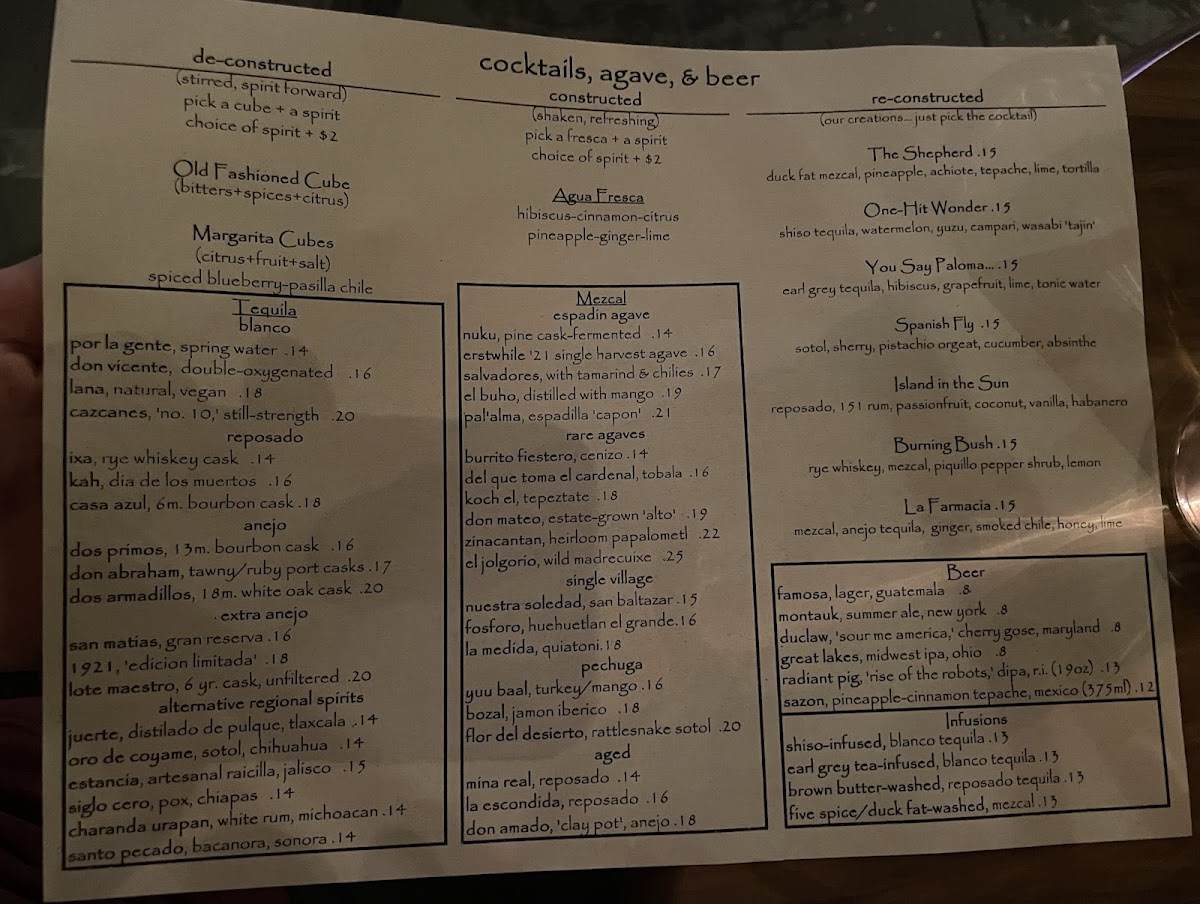 cocktails, agave, & beer
de-constructed
(stirred, spirit forward)
pick a cube + a spirit
choice of spirit + $2
Old Fashioned Cube
(bitters+spices+citrus)
Margarita Cubes
(citrus+fruit+salt)
spiced blueberry-pasilla chile
Tequila
blanco
por la gente, spring water .14
don vicente, double-oxygenated .16
lana, natural, vegan .18
cazcanes, 'no. 10,' still-strength .20
reposado
ixa, rye whiskey cask .14
kah, dia de los muertos .16
casa azul, 6m. bourbon cask .18
anejo
dos primos, 13m. bourbon cask .16
don abraham, tawny/ruby port casks .17
dos armadillos, 18m. white oak cask .20
extra anejo
san matias, gran reserva .16
1921, 'edicion limitada' .18
lote maestro, 6 yr. cask, unfiltered .20
alternative regional spirits
juerte, distilado de pulque, tlaxcala .14
oro de coyame, sotol, chihuahua .14
estancia, artesanal raicilla, jalisco .15
siglo cero, pox, chiapas .14
charanda urapan, white rum, michoacan .14
santo pecado, bacanora, sonora .14
constructed
(shaken, refreshing)
pick a fresca + a spirit
choice of spirit + $2
Agua Fresca
hibiscus-cinnamon-citrus
pineapple-ginger-lime
Mezcal
espadin agave
nuku, pine cask-fermented .14
erstwhile '21 single harvest agave .16
salvadores, with tamarind & chilies .17
el buho, distilled with mango .19
pal'alma, espadilla 'capon' .21
rare agaves
burrito fiestero, cenizo .14
del que toma el cardenal, tobala .16
koch el, tepeztate .18
don mateo, estate-grown 'alto' .19
zinacantan, heirloom papalometl .22
el jolgorio, wild madrecuixe .25
single village
nuestra soledad, san baltazar .15
fosforo, huehuetlan el grande .16
la medida, quiatoni .18
pechuga
yuu baal, turkey/mango .16
bozal, jamon iberico .18
flor del desierto, rattlesnake sotol .20
aged
mina real, reposado .14
la escondida, reposado .16
don amado, 'clay pot', anejo .18
re-constructed
(our creations... just pick the cocktail)
The Shepherd .15
duck fat mezcal, pineapple, achiote, tepache, lime, tortilla
One-Hit Wonder .15
shiso tequila, watermelon, yuzu, campari, wasabi 'tajin'
You Say Paloma... .15
earl grey tequila, hibiscus, grapefruit, lime, tonic water
Spanish Fly .15
sotol, sherry, pistachio orgeat, cucumber, absinthe
Island in the Sun
reposado, 151 rum, passionfruit, coconut, vanilla, habanero
Burning Bush .15
rye whiskey, mezcal, piquillo pepper shrub, lemon
La Farmacia .15
mezcal, anejo tequila, ginger, smoked chile, honey, lime
Beer
famosa, lager, guatemala .8
montauk, summer ale, new york .8
duclaw, 'sour me america,' cherry gose, maryland .8
great lakes, midwest ipa, ohio .8
radiant pig, 'rise of the robots,' dipa, r.i. (19oz) .13
sazon, pineapple-cinnamon tepache, mexico (375ml) .12
Infusions
shiso-infused, blanco tequila .13
earl grey tea-infused, blanco tequila .13
brown butter-washed, reposado tequila .13
five spice/duck fat-washed, mezcal .13